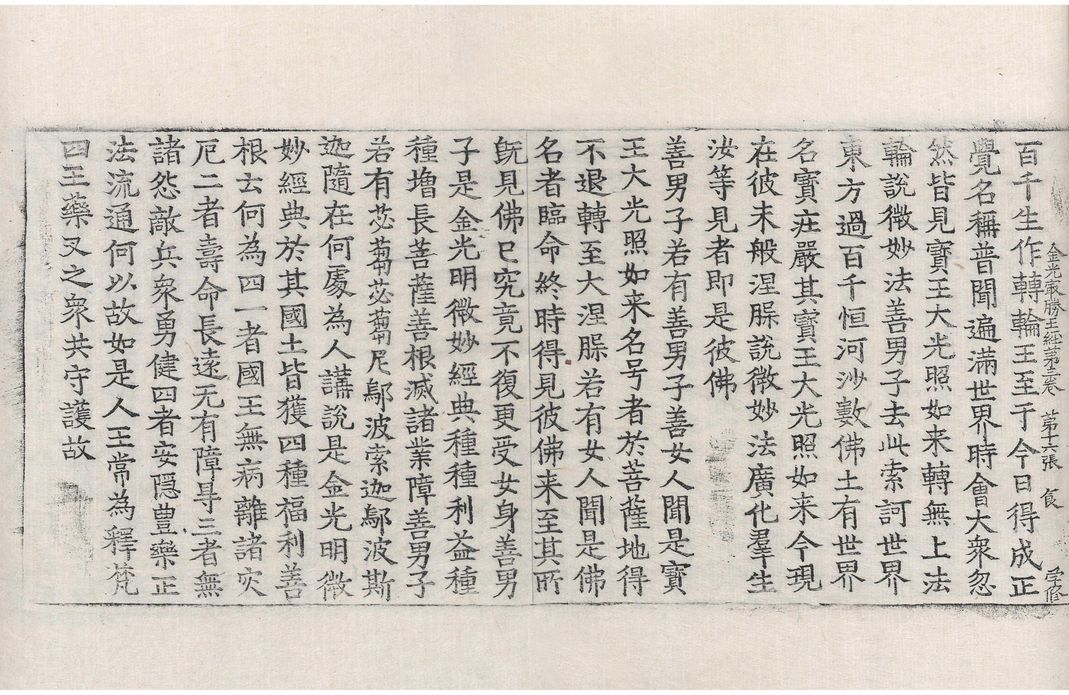 金光㝡勝王經第三卷　第十六張　食
百千生作轉輪王至于今日得成正
覺名稱普聞遍滿世界時會大衆忽
然皆見寶王大光照如来轉無上法
輪說微妙法善男子去此索訶世界
東方過百千恒河沙數佛土有世界
名寶庄嚴其寶王大光照如来今現
在彼未般涅脲說微妙法廣化羣生
汝等見者即是彼佛
善男子若有善男子善女人聞是寶
王大光照如来名号者於菩薩地得
不退轉至大涅脲若有女人聞是佛
名者臨命終時得見彼佛来至其所
旣見佛已究竟不復更受女身善男
子是金光明微妙經典種種利益種
種增長菩薩善根滅諸業障善男子
若有苾蒭苾蒭尼鄔波索迦鄔波斯
迦隨在何處為人講說是金光明微
妙經典於其國土皆獲四種福利善
根云何為四一者國王無病離諸灾
厄二者壽命長遠无有障㝵三者無
諸怨敵兵衆勇健四者安隱豊樂正
法流通何以故如是人王常為釋梵
四王藥叉之衆共守護故